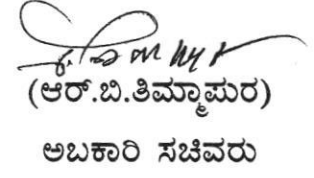 (ಆರ್.ಬಿ.ತಿಮ್ಮಾಪುರ)
ಅಬಕಾರಿ ಸಚಿವರು